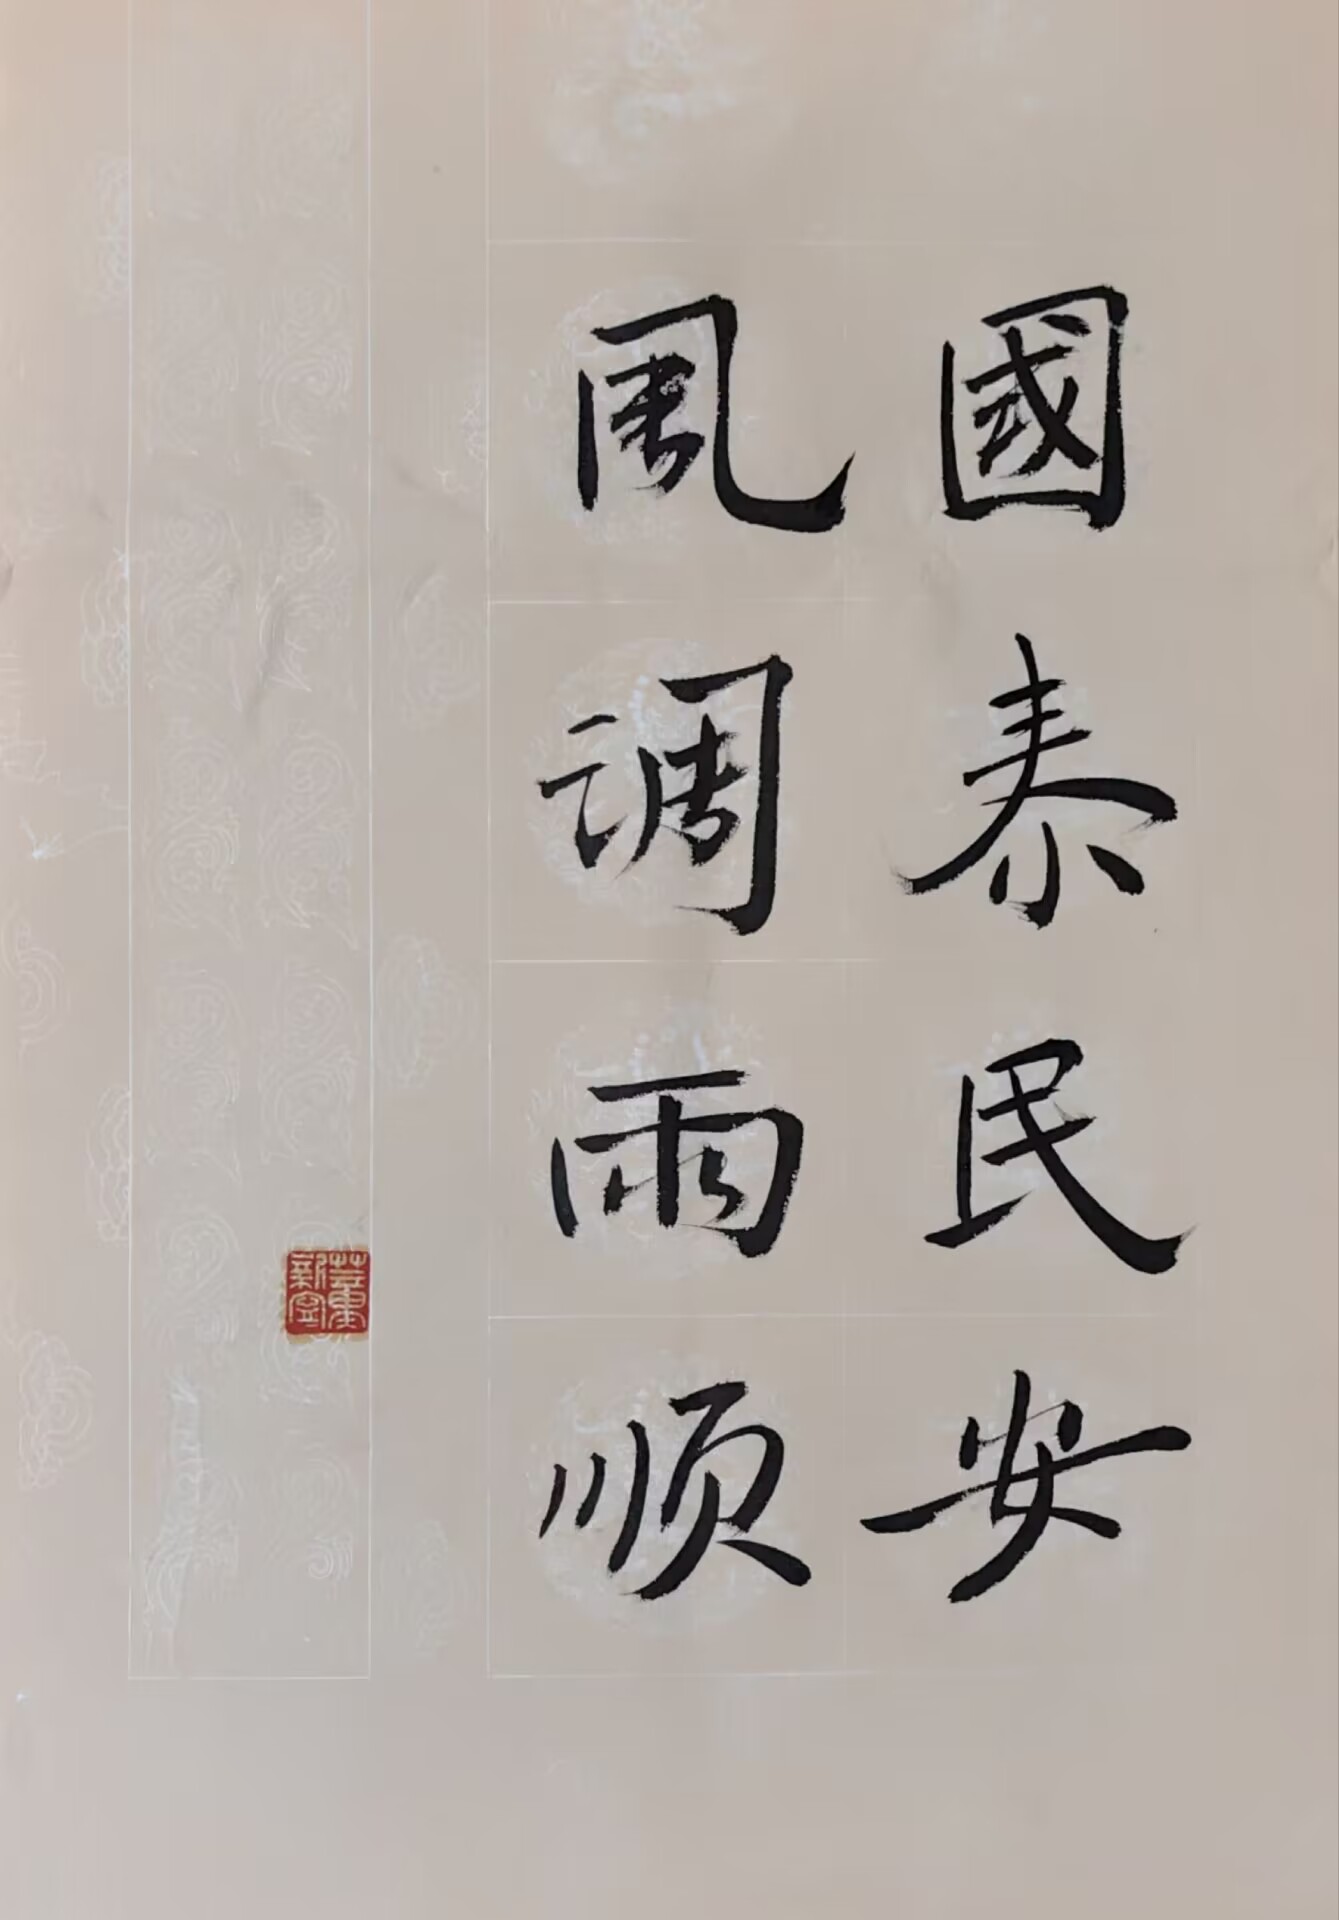 國泰民安
风调雨顺